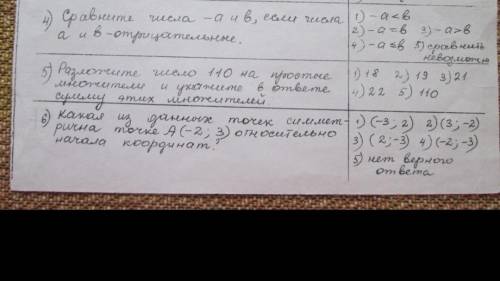 4) Сравните числа -а и в, если числа
а и в - отрицательные.
1) -а < в
2) -а = в 3) -а > в
4) -а ≤ в 5) сравнить
невозможно
5) Разложите число 110 на простые
множители и укажите в ответе
сумму этих множителей
1) 18 2) 19 3) 21
4) 22 5) 110
6) Какая из данных точек симмет-
рична точке А (-2; 3) относительно
начала координат?
1) (-3; 2) 2) (3; -2)
3) (2; -3) 4) (-2; -3)
5) нет верного
ответа